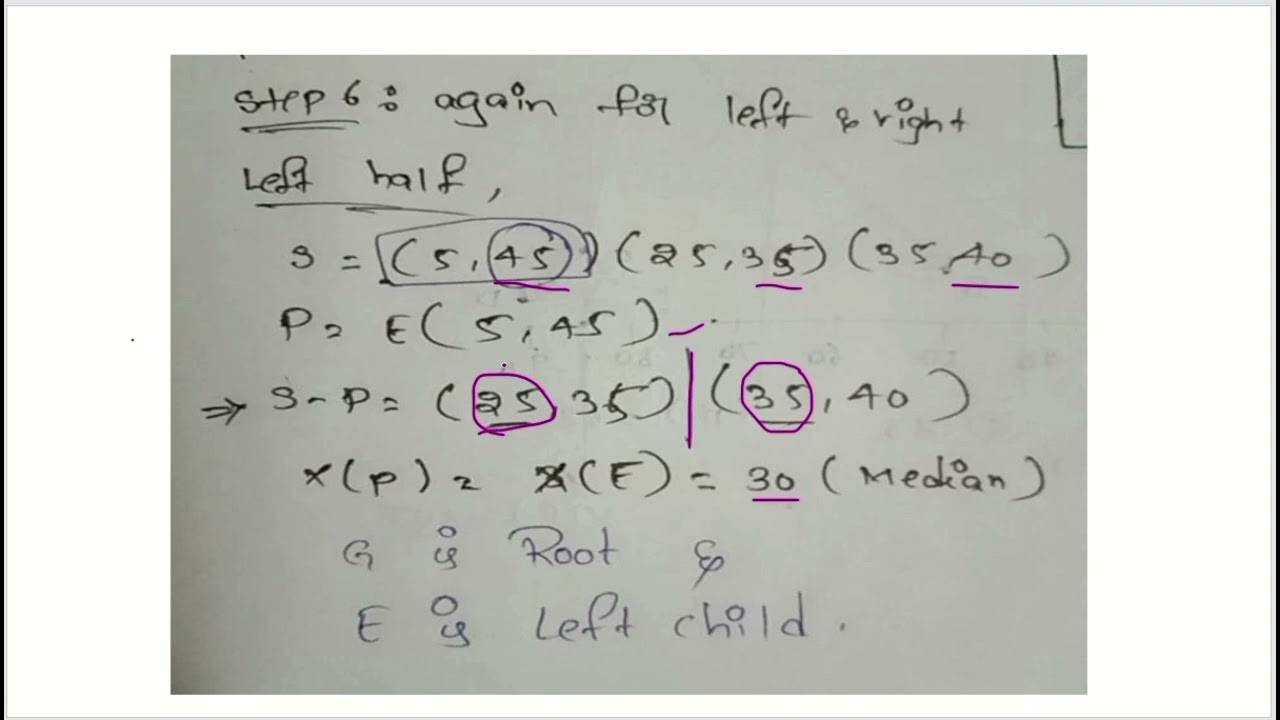 Step 6: again for left & right
Left half,
S = (5,45) (25,35) (35,40)
P = E(5,45)
⇒ S-P = (25,35) | (35,40)
x(p) = x(E) = 30 (Median)
G is Root &
E is Left child.